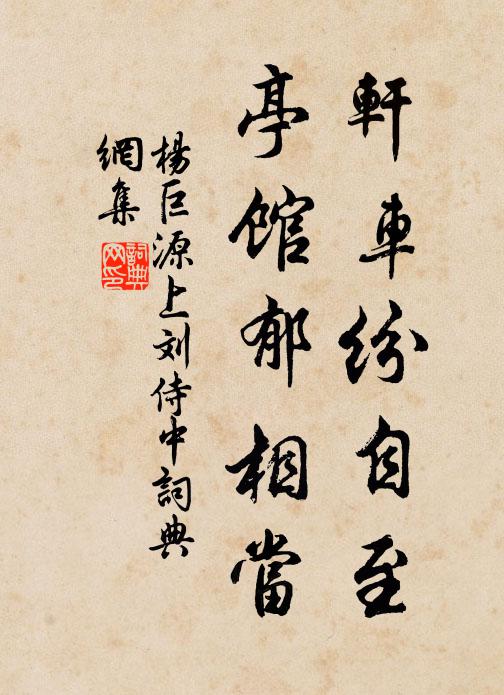 軒車紛自至
亭館郁相當
楊巨源上刘侍中詞典
網集
詞典
网印